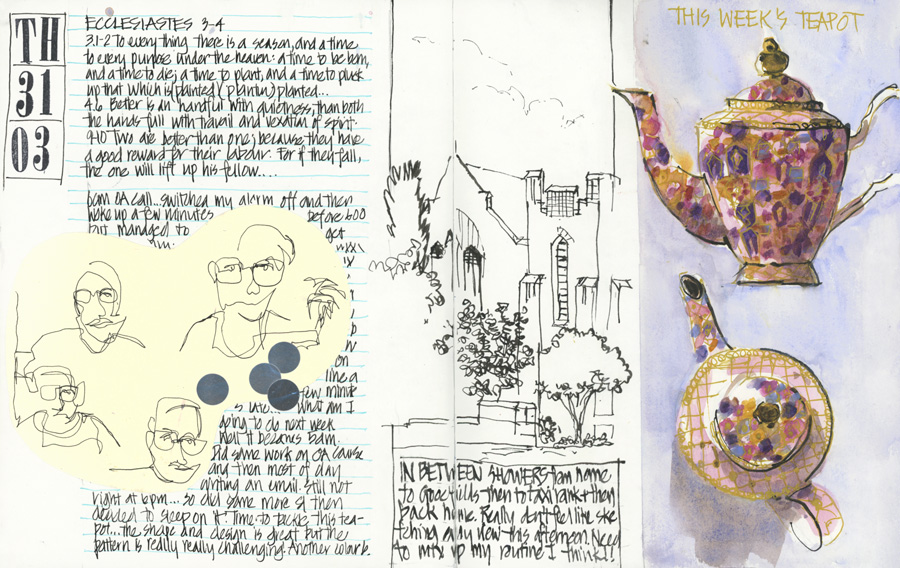 TH
31
03
ECCLESIASTES 3-4
3.1-2 To every thing there is a season, and a time
to every purpose under the heaven: a time to be born,
and a time to die; a time to plant, and a time to pluck
up that which is planted
planted...
4.6 Better is an handful with quietness, than both
the hands full with travail and vexation of spirit.
9-10 Two are better than one; because they have
a good reward for their labour. For if they fall,
the one will lift up his fellow....
6am OA call... switched my alarm off and then
woke up a few minutes before 6.00
but managed to get
on
line a
few minute
s late... What am I
going to do next week
when it becomes 5am.
Did some work on OA course
and then most of day
writing an email. Still not
right at 6pm... so did some more & then
decided to sleep on it. Time to tackle this tea-
pot... the shape and design is great but the
pattern is really really challenging. Another colour &
IN BETWEEN SHOWERS from home
to then to taxi rank & then
back home. Really don't feel like ske
tching any view this afternoon. Need
to mix up my routine I think!!
THIS WEEK'S TEAPOT